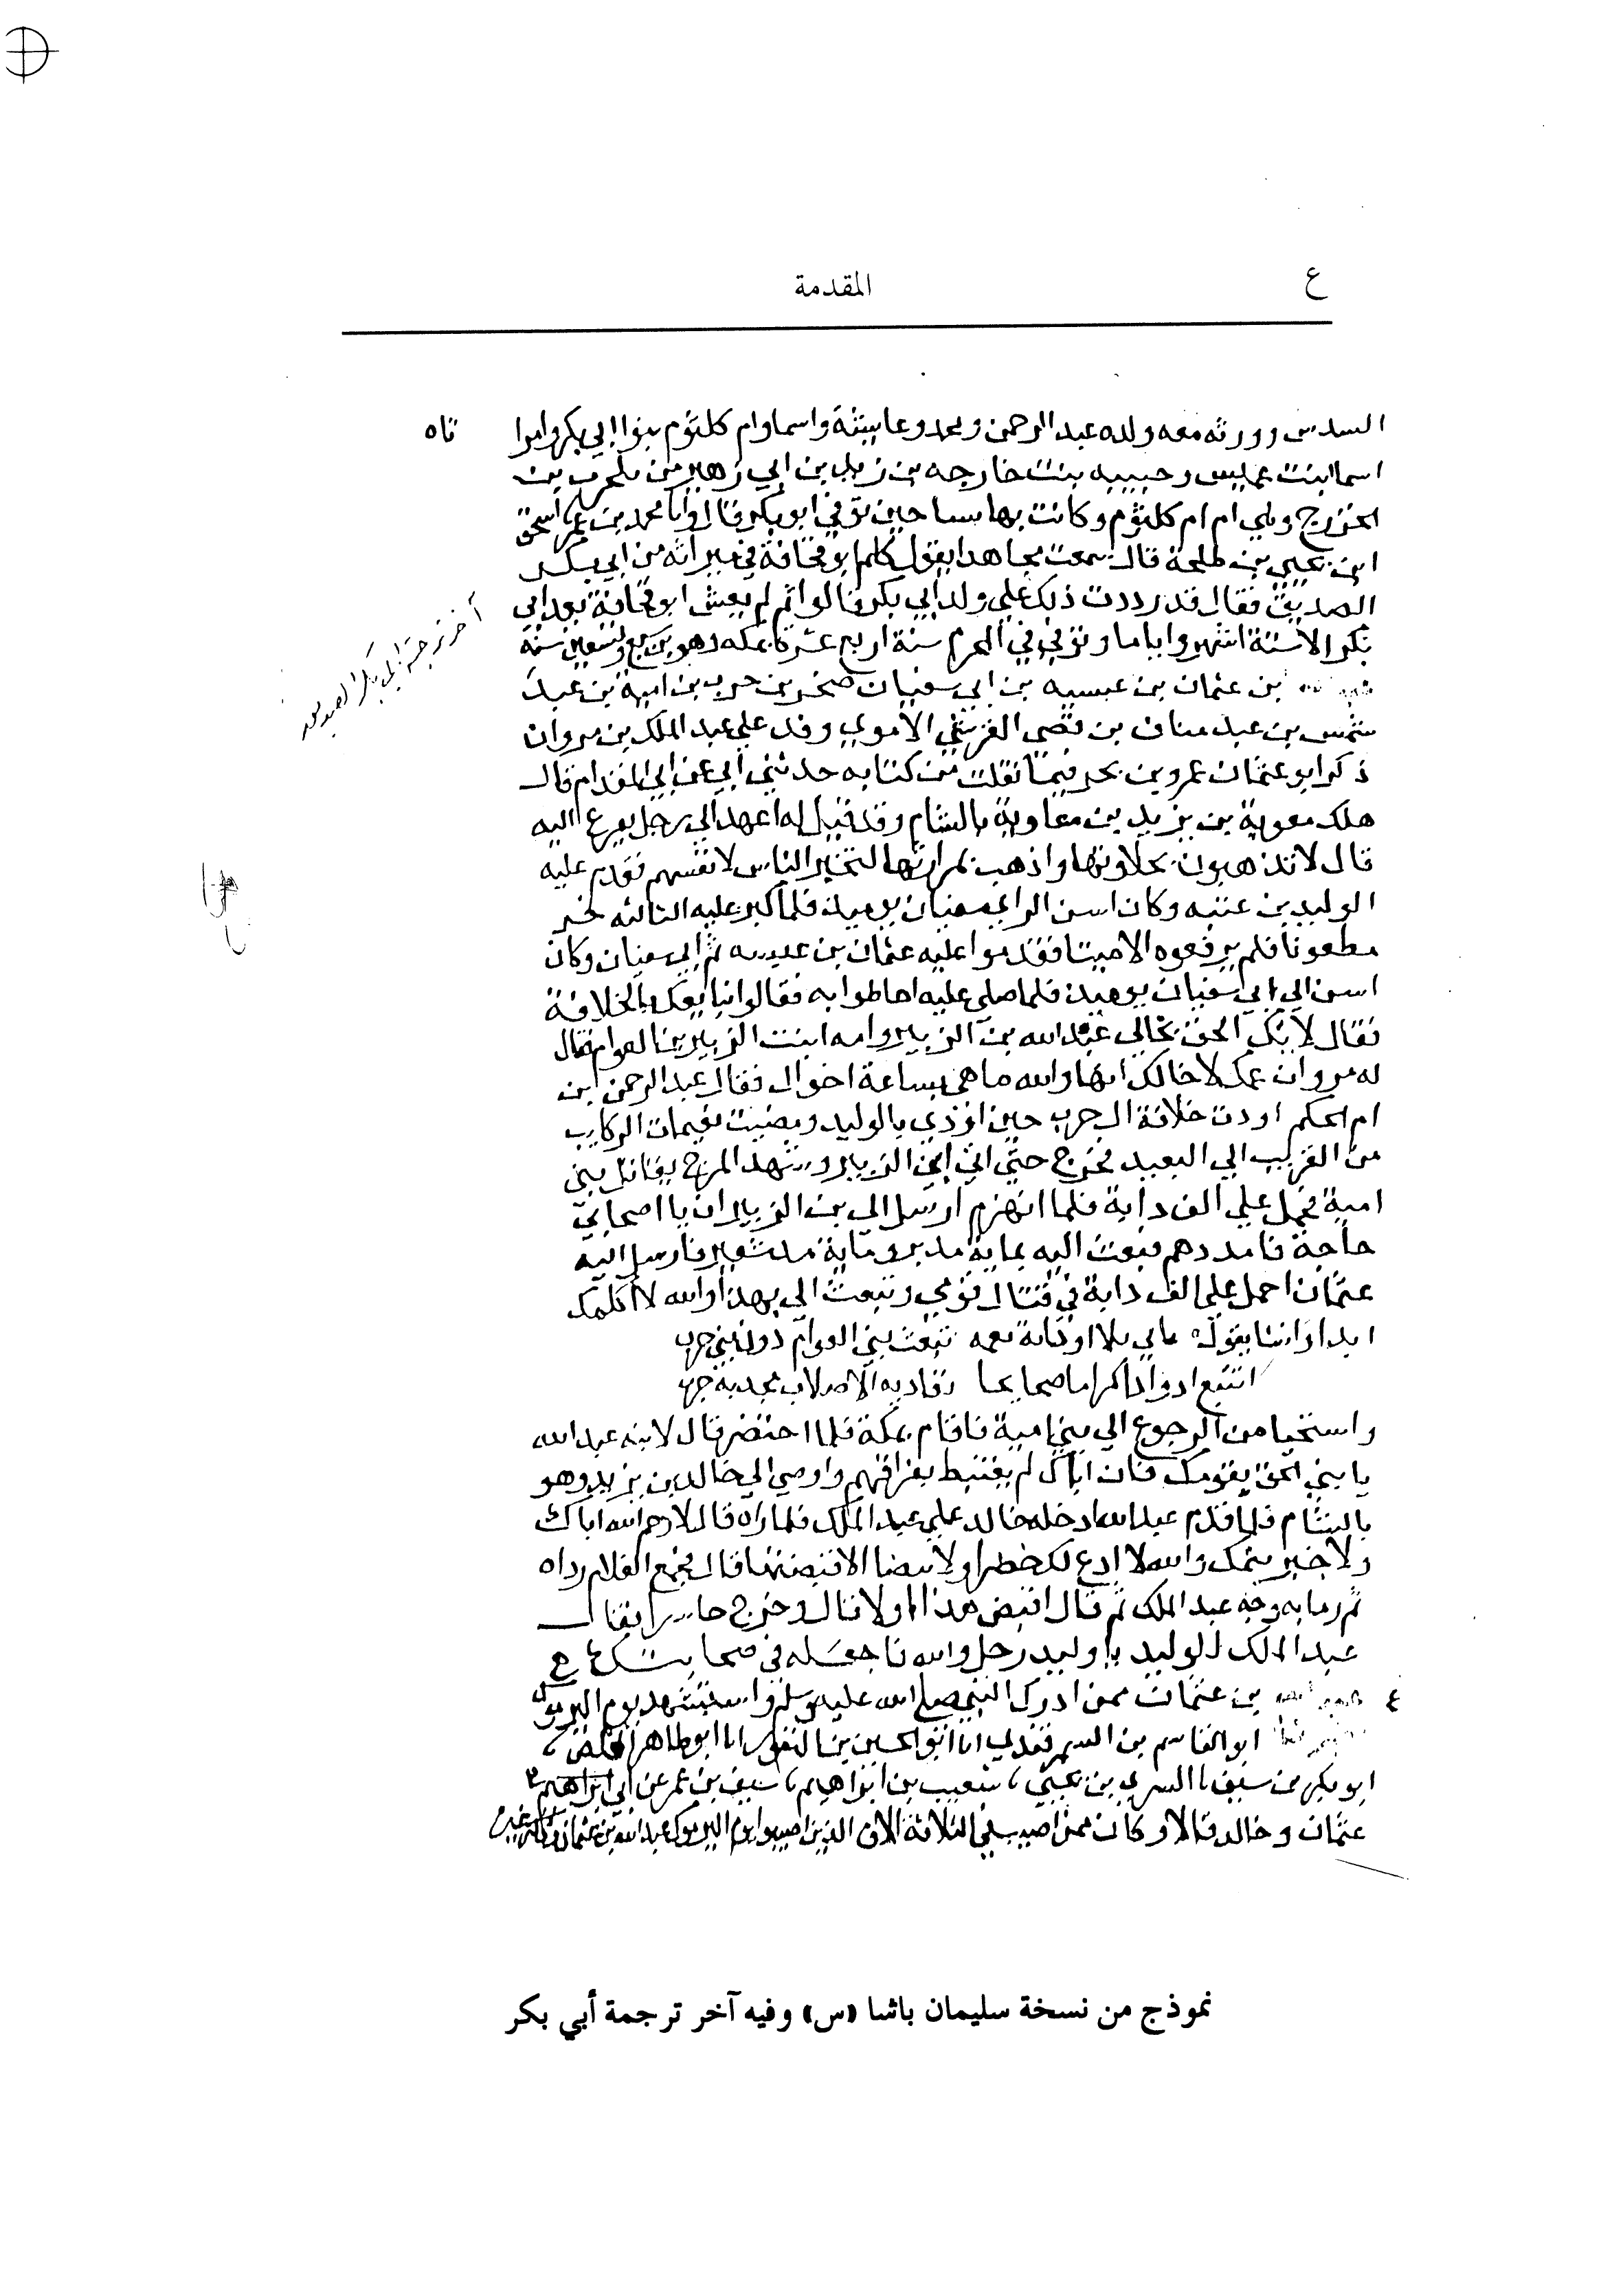 ع
المقدمة
السدس وورثه معه ولده عبد الرحمن ومحمد وعايشة واسما وام كلثوم بنوا ابي بكر وامرا
تاه
اسما بنت عميس وحبيبه بنت خارجه بن زيد بن ابي زهير من بلحرب بن
الخزرج وهي ام ام كلثوم وكانت بها نسا حين توفي ابو بكر قال وانا محمد بن عمر اسحق
ابن يحيى بن طلحة قال سمعت مجاهدا يقول كلم ابو قحافة في ميراثه من ابي بكر
الصديق فقال قد رددت ذلك علي ولد ابي بكر قالوا ثم لم يعش ابو قحافة بعد ابي
بكر الا ستة اشهر واياما وتوفي في المحرم سنة اربع عشرة بمكه وهو بن سبع وتسعين سنة
آخر ترجمة ابي بكر الصديق
بن عثمان بن عبسه بن ابي سفيان صخر بن حرب بن امية بن عبد
شمس بن عبد مناف بن قصي القرشي الاموي وفد علي عبد الملك بن مروان
ذكر ابو عثمان عمرو بن بحر فيما نقلت من كتابه حدثني ابي عن ابي المقدام قال
هلك معوية بن يزيد بن معاوية بالشام وقد قيل له اعهد الي رجل يفرع اليه
قال لا تذهبون بحلاوتها واذهب بمرارتها لتخير الناس لانفسهم فقدم عليه
الوليد بن عتبه وكان اسن ال ابي سفيان يوميذ فلما كبر عليه الثالثه خر
مطعونا فلم يرفعوه الا ميتا فقدموا عليه عثمان بن ابي سفيان وكان
اسن ال ابي سفيان يوميذ فلما صلى عليه احاطوا به فقالوا نبايعك بالخلافة
فقال لا بل الحق بخالي عبد الله بن الزبير وامه ابنت الزبير بن العوام فقال
له مروان عمك لا خالك انها والله ما هي بساعة اخوال فقال عبد الرحمن ابن
ام الحكم اودت خلافة ال حرب حين اوذي بالوليد ومضيت بعثمان الركايب
من القريب الي البعيد فخرج حتي اتي ابن الزبير وشهد المرج يقاتل بني
امية فحمل علي الف دابة فلما انهزم ارسل الي بن الزبير ان با صحابي
حاجة فامددهم فبعث اليه بماية مد بر وماية مد شعير فارسل اليه
عثمان احمل علي الف دابة في قتال قومي وتبعث الي بهذا والله لا اكلمك
ابدا وانشا يقول تبعت بني العوام دون بني حرب
اتتبع
واستحيا من الرجوع الي بني امية فاقام بمكة فلما احتضر قال لابنه عبد الله
يا بني الحق بقومك فان اباك لم يغتبط بفراقهم واوصي الي خالد بن يزيد وهو
بالشام فلما قدم عبد الله ادخله خالد علي عبد الملك فلما راه قال لا رحم الله اباك
ولا جبر يتمك والله لا ادع لك خضرا ولا بيضا الا قبضتها قال فجمع الغلام رداه
ثم رما به وجه عبد الملك ثم قال اقبض هذا اولا قال وخرج فقال
عبد الملك للوليد يا وليد رجل والله فاجعله في صحابتك
بن عثمان ممن ادرك النبي صلى الله عليه وسلم واستشهد يوم اليرموك
ابو القاسم بن السمرقندي انا ابو الحسين بن النقور انا ابو طاهر المخلص
ابو بكر بن سيف السري بن يحيى شعيب بن ابراهيم سيف بن عمر عن ابي
عثمان وخالد قالا وكان ممن اصيب في الثلاثة الالاف الذين اصيبوا يوم اليرموك عبد الله بن عثمان
نموذج من نسخة سليمان باشا (س) وفيه آخر ترجمة أبي بكر